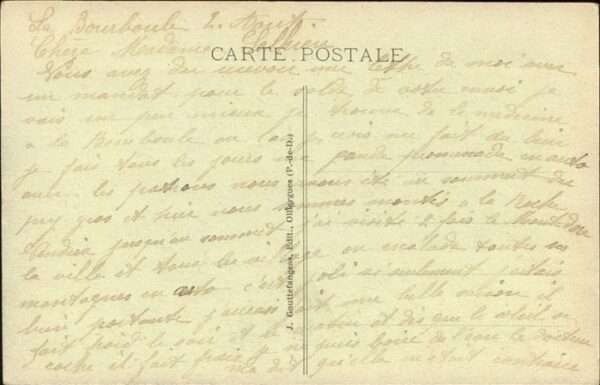 La Bourboule 2 Aout
Chère Madame
CARTE POSTALE
Vous avez du recevoir une lettre de moi avec
un mandat pour le solde de votre mois je
vais un peu mieux je trouve de la medecine
a la Bourboule ou l'air me fait du bien
je fais tous les jours une grande promenade en auto
avec les patrons nous avons ete au sommet du
puy gros et puis nous sommes montés a la Roche
Vendeix jusqu'au sommet j'ai visité 2 fois le Mont Dore
la ville et tous les villages ou malade toutes ses
montagnes en auto c'est joli si seulement j'etais
bien portante j'aurais fait une belle saison il
fait froid le soir et le matin et dis que le soleil se
couche il fait frais je puis boire de l'eau le docteur
ma dit qu'elle m'etait contraire
J. Gouttefangeas, Edit., Olliergues (P.-de-D.)